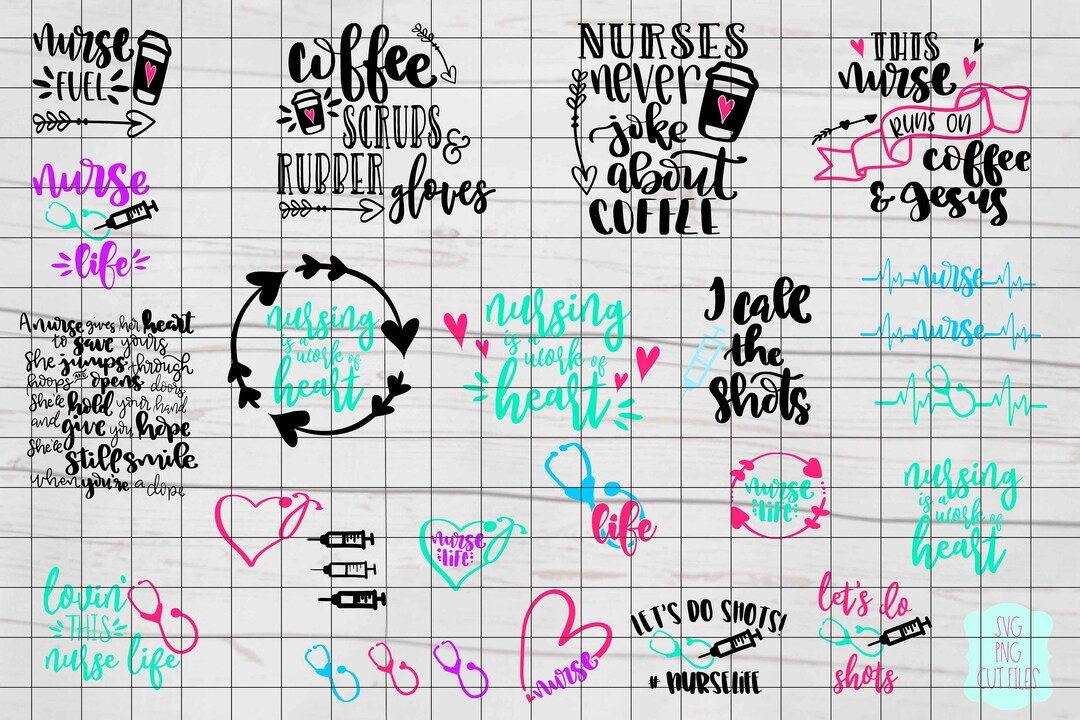 nurse
FUEL
coffee
SCRUBS &
RUBBER
gloves
NURSES
never
joke
about
COFFEE
THIS
nurse
RUNS ON
coffee
& Jesus
nurse
life
A nurse gives her heart
to save yours
She jumps through
hoops AND opens doors
She'll hold your hand
and give you hope
She'll
still smile
when you're a dope
nursing
is a
work of
heart
nursing
is a
work of
heart
I call
the
shots
nurse
nurse
nurse
LIFE
life
nurse
LIFE
nursing
is a
work of
heart
lovin'
THIS
nurse life
nurse
LET'S DO SHOTS!
# NURSELIFE
let's do
shots
SVG
PNG
CUT FILES